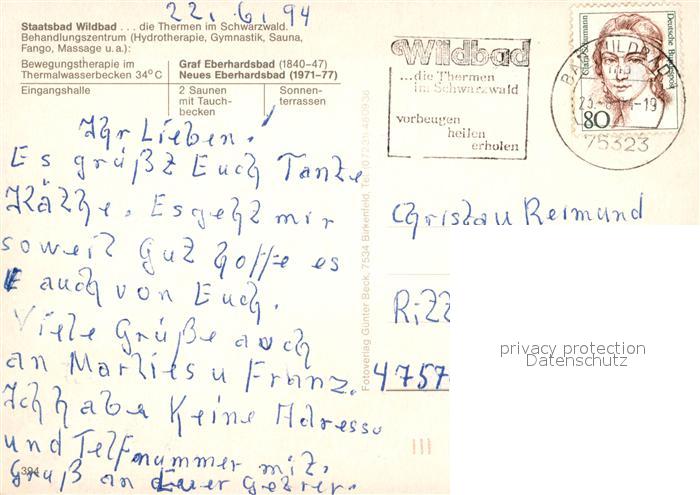 22.6.94
Staatsbad Wildbad . . . die Thermen im Schwarzwald.
Behandlungszentrum (Hydrotherapie, Gymnastik, Sauna,
Fango, Massage u.a.):
Bewegungstherapie im
Thermalwasserbecken 34°C
Graf Eberhardsbad (1840-47)
Neues Eberhardsbad (1971-77)
Eingangshalle
2 Saunen
mit Tauch-
becken
Sonnen-
terrassen
Ihr Lieben!
Es grüßt Euch Tante
Käthe. Es geht mir
soweit gut hoffe es
auch von Euch.
Viele Grüße auch
an Marlies u Franz.
Ich habe Keine Adresse
und Telfnummer mit.
Gruß an Euer
394
Fotoverlag Günter Beck, 7534 Birkenfeld, Tel.
Wildbad
...die Thermen
im Schwarzwald
vorbeugen
heilen
erholen
Clara Schumann
Deutsche Bundespost
80
BAD WILDBAD
-19
75323
Christau Reimund
Rizz
4757
privacy protection
Datenschutz